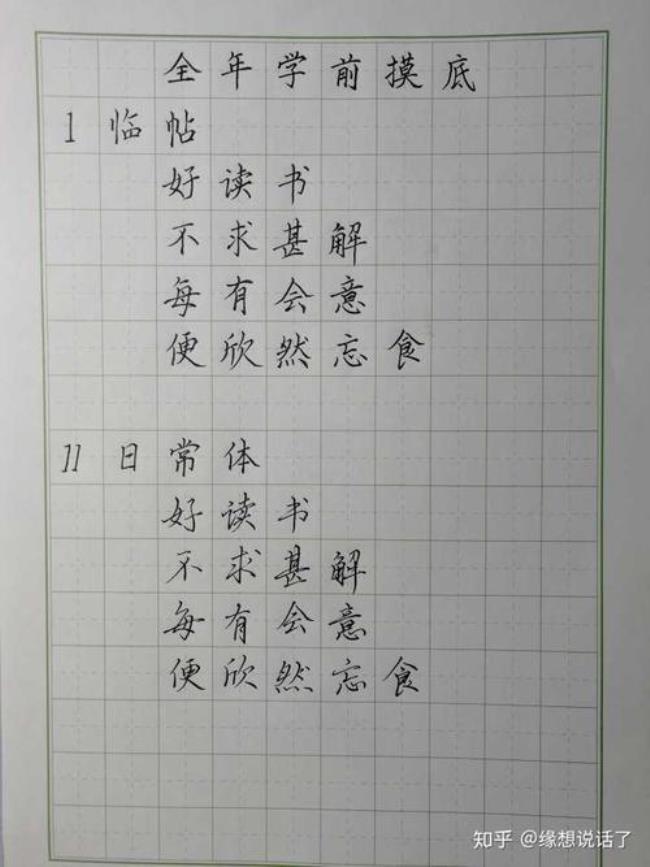 全年学前摸底
1 临帖
好读书
不求甚解
每有会意
便欣然忘食
11 日常体
好读书
不求甚解
每有会意
便欣然忘食
知乎 @缘想说话了